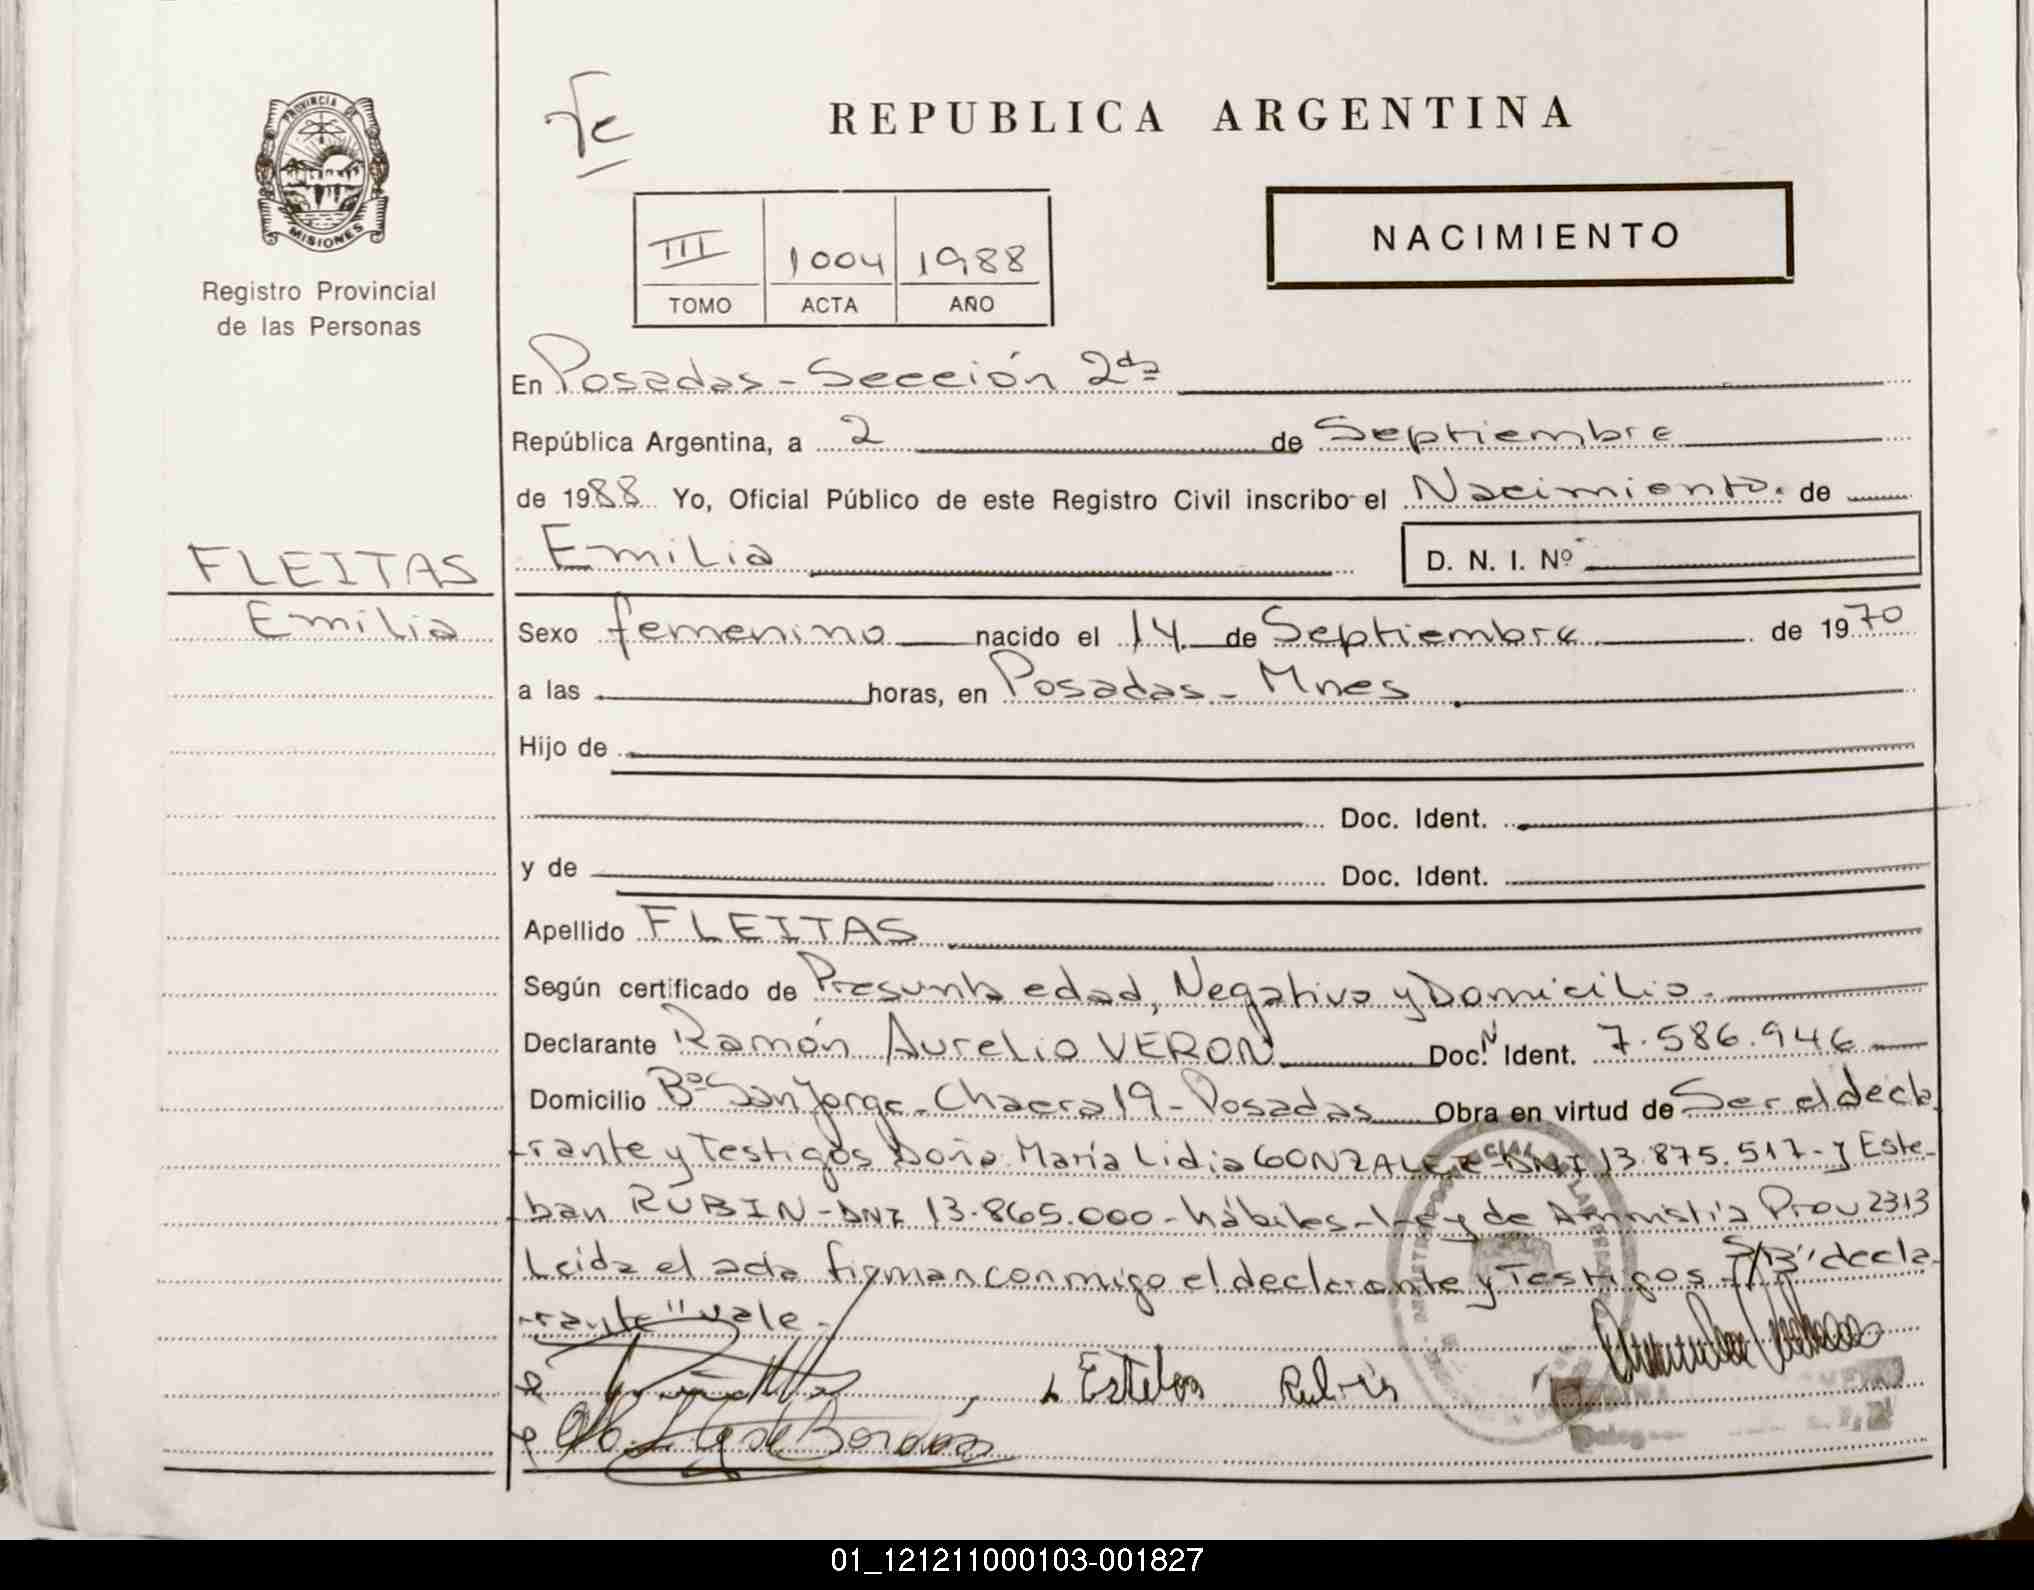 PROVINCIA DE
MISIONES
Registro Provincial
de las Personas
Fe
REPUBLICA ARGENTINA
NACIMIENTO
III 1004 1988
TOMO ACTA AÑO
En Posadas - Sección 2da
República Argentina, a 2 de Septiembre
de 1988 Yo, Oficial Público de este Registro Civil inscribo el Nacimiento. de
FLEITAS
Emilia
Emilia D. N. I. Nº
Sexo femenino nacido el 14 de Septiembre de 1970
a las horas, en Posadas - Mnes
Hijo de
Doc. Ident.
y de Doc. Ident.
Apellido FLEITAS
Según certificado de Presunta edad, Negativo y Domicilio.
Declarante Ramón Aurelio VERON Doc. Ident. N 7.586.946
Domicilio Bº San Jorge - Chacra 19 - Posadas Obra en virtud de Ser el decla
rante y Testigos Doña María Lidia GONZALEZ - DNI 13.875.517 - y Este-
ban RUBIN - DNI 13.865.000 - hábiles - Ley de Amnistía Prov 2313
Leída el acta firman conmigo el declarante y Testigos S/B "decla-
rante" vale -
Esteban Rubin
01_121211000103-001827